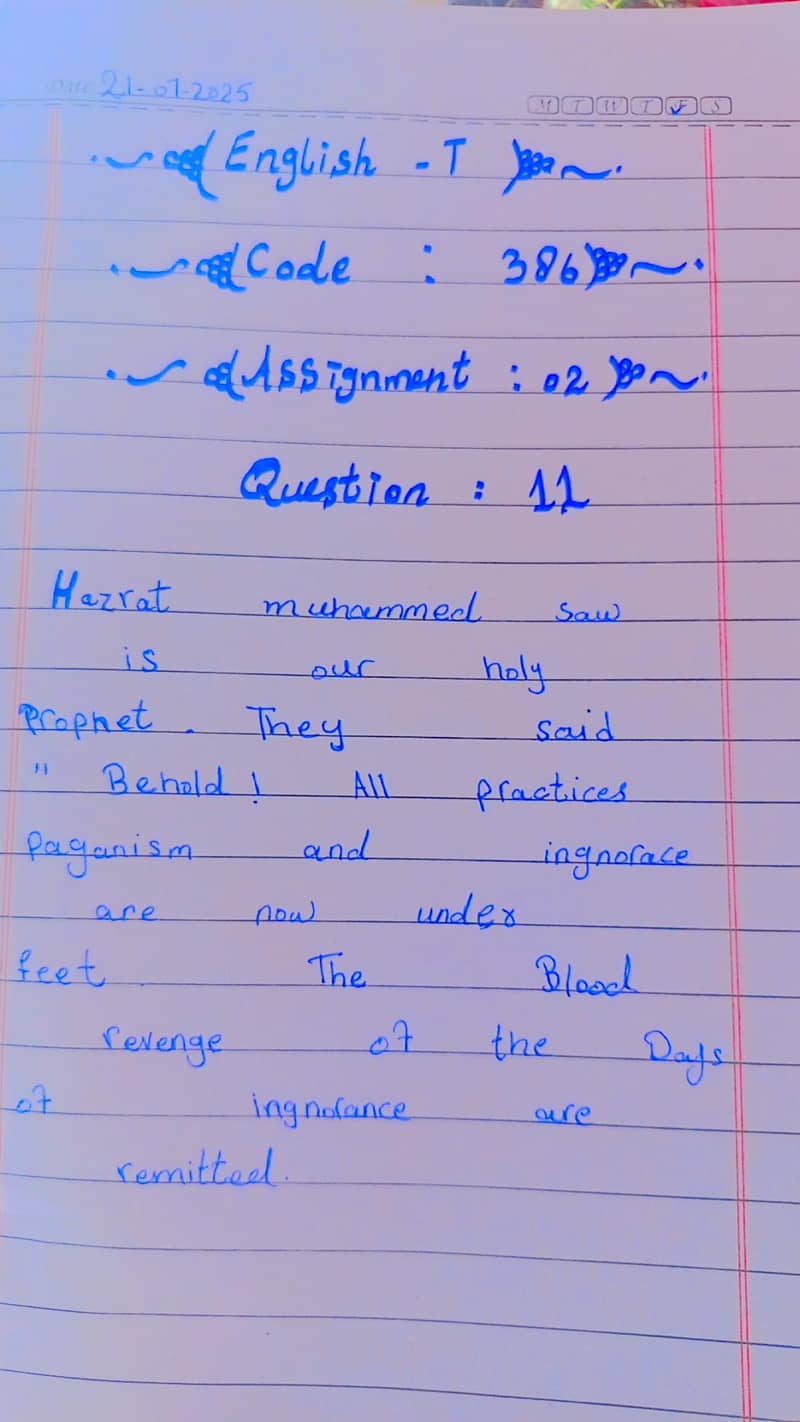 Date 21-07-2025
M T W T F S
English - I
Code : 386
Assignment : 02
Question : 11
Hazrat muhammed saw
is our holy
prophet. They said
" Behold! All practices
paganism and ingnorace
are now under
feet. The Blood
revenge of the Days
of ingnorance are
remitted.